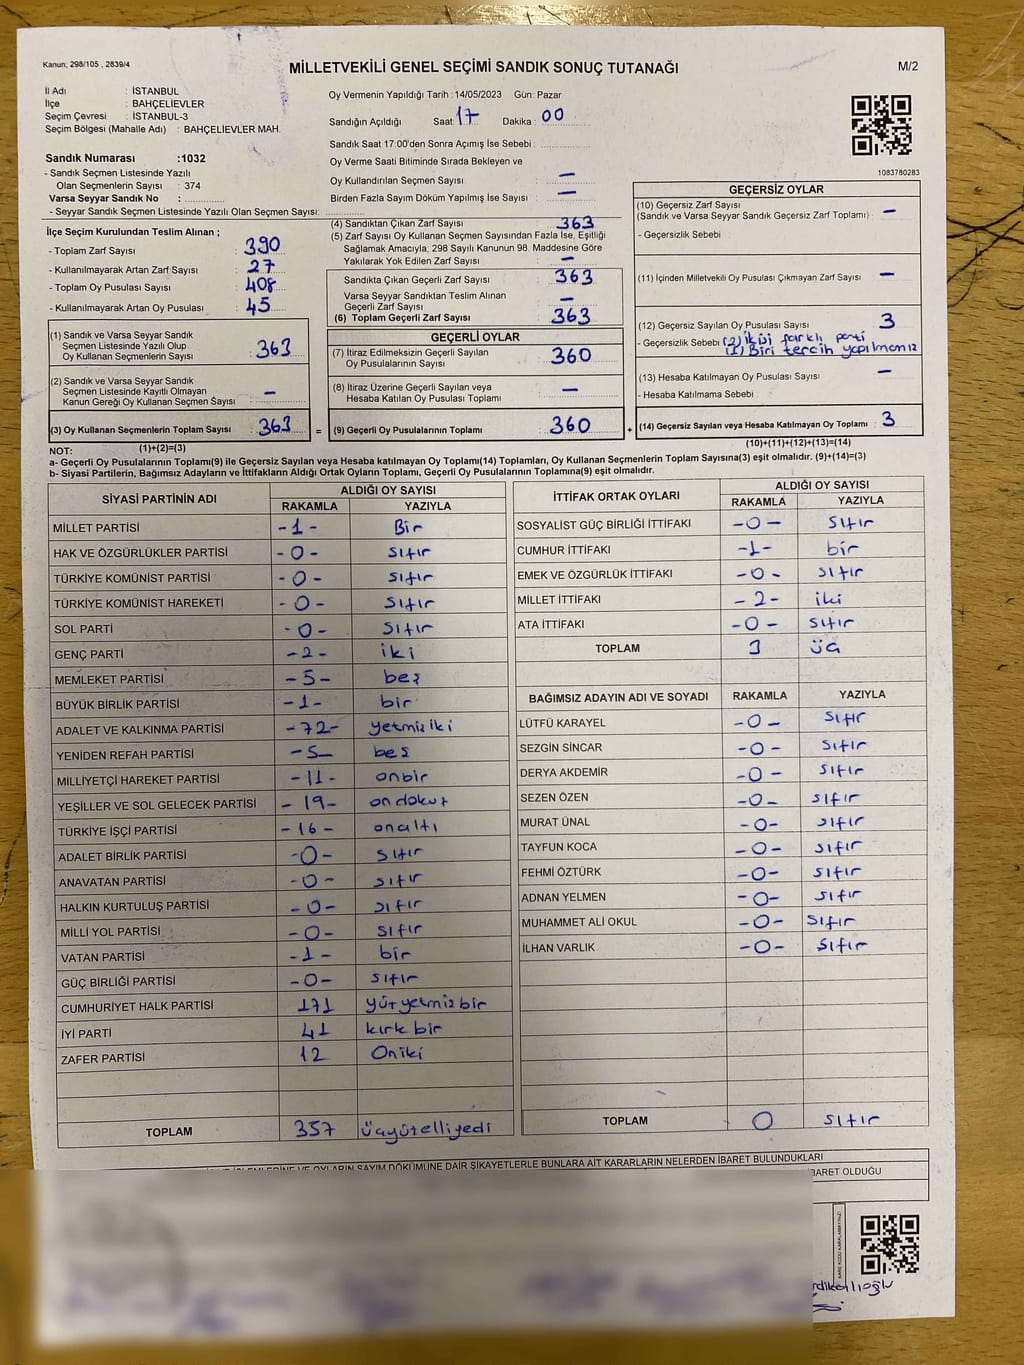 Kanun; 298/105 , 2839/4
MİLLETVEKİLİ GENEL SEÇİMİ SANDIK SONUÇ TUTANAĞI
M/2
İl Adı : İSTANBUL
İlçe : BAHÇELİEVLER
Seçim Çevresi : İSTANBUL-3
Seçim Bölgesi (Mahalle Adı) : BAHÇELİEVLER MAH.
Sandık Numarası :1032
- Sandık Seçmen Listesinde Yazılı
Olan Seçmenlerin Sayısı : 374
Varsa Seyyar Sandık No :
- Seyyar Sandık Seçmen Listesinde Yazılı Olan Seçmen Sayısı:
Oy Vermenin Yapıldığı Tarih :14/05/2023 Gün: Pazar
Sandığın Açıldığı Saat: 17 Dakika : 00
Sandık Saat 17:00'den Sonra Açımış İse Sebebi :
Oy Verme Saati Bitiminde Sırada Bekleyen ve
Oy Kullandırılan Seçmen Sayısı —
Birden Fazla Sayım Döküm Yapılmış İse Sayısı : —
1083780283
İlçe Seçim Kurulundan Teslim Alınan ;
- Toplam Zarf Sayısı : 390
- Kullanılmayarak Artan Zarf Sayısı : 27
- Toplam Oy Pusulası Sayısı : 408
- Kullanılmayarak Artan Oy Pusulası : 45
(1) Sandık ve Varsa Seyyar Sandık
Seçmen Listesinde Yazılı Olup
Oy Kullanan Seçmenlerin Sayısı : 363
(2) Sandık ve Varsa Seyyar Sandık
Seçmen Listesinde Kayıtlı Olmayan
Kanun Gereği Oy Kullanan Seçmen Sayısı : —
(3) Oy Kullanan Seçmenlerin Toplam Sayısı : 363 =
(1)+(2)=(3)
(4) Sandıktan Çıkan Zarf Sayısı : 363
(5) Zarf Sayısı Oy Kullanan Seçmen Sayısından Fazla İse, Eşitliği
Sağlamak Amacıyla; 298 Sayılı Kanunun 98. Maddesine Göre
Yakılarak Yok Edilen Zarf Sayısı : —
Sandıkta Çıkan Geçerli Zarf Sayısı : 363
Varsa Seyyar Sandıktan Teslim Alınan
Geçerli Zarf Sayısı : —
(6) Toplam Geçerli Zarf Sayısı : 363
GEÇERLİ OYLAR
(7) İtiraz Edilmeksizin Geçerli Sayılan
Oy Pusulalarının Sayısı : 360
(8) İtiraz Üzerine Geçerli Sayılan veya
Hesaba Katılan Oy Pusulası Toplamı : —
(9) Geçerli Oy Pusulalarının Toplamı : 360 +
GEÇERSİZ OYLAR
(10) Geçersiz Zarf Sayısı
(Sandık ve Varsa Seyyar Sandık Geçersiz Zarf Toplamı) : —
- Geçersizlik Sebebi :
(11) İçinden Milletvekili Oy Pusulası Çıkmayan Zarf Sayısı : —
(12) Geçersiz Sayılan Oy Pusulası Sayısı : 3
- Geçersizlik Sebebi : (2) İkisi farklı parti
(1) Biri tercih yapılmamız
(13) Hesaba Katılmayan Oy Pusulası Sayısı : —
- Hesaba Katılmama Sebebi :
(14) Geçersiz Sayılan veya Hesaba Katılmayan Oy Toplamı : 3
(10)+(11)+(12)+(13)=(14)
NOT:
a- Geçerli Oy Pusulalarının Toplamı(9) ile Geçersiz Sayılan veya Hesaba katılmayan Oy Toplamı(14) Toplamları, Oy Kullanan Seçmenlerin Toplam Sayısına(3) eşit olmalıdır. (9)+(14)=(3)
b- Siyasi Partilerin, Bağımsız Adayların ve İttifakların Aldığı Ortak Oyların Toplamı, Geçerli Oy Pusulalarının Toplamına(9) eşit olmalıdır.
SİYASİ PARTİNİN ADI ALDIĞI OY SAYISI
RAKAMLA YAZIYLA
MİLLET PARTİSİ -1- Bir
HAK VE ÖZGÜRLÜKLER PARTİSİ -0- sıfır
TÜRKİYE KOMÜNİST PARTİSİ -0- sıfır
TÜRKİYE KOMÜNİST HAREKETİ -0- sıfır
SOL PARTİ -0- sıfır
GENÇ PARTİ -2- iki
MEMLEKET PARTİSİ -5- beş
BÜYÜK BİRLİK PARTİSİ -1- bir
ADALET VE KALKINMA PARTİSİ -72- yetmiş iki
YENİDEN REFAH PARTİSİ -5- beş
MİLLİYETÇİ HAREKET PARTİSİ -11- onbir
YEŞİLLER VE SOL GELECEK PARTİSİ -19- on dokuz
TÜRKİYE İŞÇİ PARTİSİ -16- onaltı
ADALET BİRLİK PARTİSİ -0- sıfır
ANAVATAN PARTİSİ -0- sıfır
HALKIN KURTULUŞ PARTİSİ -0- sıfır
MİLLİ YOL PARTİSİ -0- sıfır
VATAN PARTİSİ -1- bir
GÜÇ BİRLİĞİ PARTİSİ -0- sıfır
CUMHURİYET HALK PARTİSİ 171 yüz yetmiş bir
İYİ PARTİ 41 kırk bir
ZAFER PARTİSİ 12 Oniki
TOPLAM 357 üçyüzelliyedi
İTTİFAK ORTAK OYLARI ALDIĞI OY SAYISI
RAKAMLA YAZIYLA
SOSYALİST GÜÇ BİRLİĞİ İTTİFAKI -0- sıfır
CUMHUR İTTİFAKI -1- bir
EMEK VE ÖZGÜRLÜK İTTİFAKI -0- sıfır
MİLLET İTTİFAKI -2- iki
ATA İTTİFAKI -0- sıfır
TOPLAM 3 üç
BAĞIMSIZ ADAYIN ADI VE SOYADI RAKAMLA YAZIYLA
LÜTFÜ KARAYEL -0- sıfır
SEZGİN SİNCAR -0- sıfır
DERYA AKDEMİR -0- sıfır
SEZEN ÖZEN -0- sıfır
MURAT ÜNAL -0- sıfır
TAYFUN KOCA -0- sıfır
FEHMİ ÖZTÜRK -0- sıfır
ADNAN YELMEN -0- sıfır
MUHAMMET ALİ OKUL -0- sıfır
İLHAN VARLIK -0- sıfır
TOPLAM 0 sıfır
İŞLEMLERİNE VE OYLARIN SAYIM DÖKÜMÜNE DAİR ŞİKAYETLERLE BUNLARA AİT KARARLARIN NELERDEN İBARET BULUNDUKLARI
BARET OLDUĞU